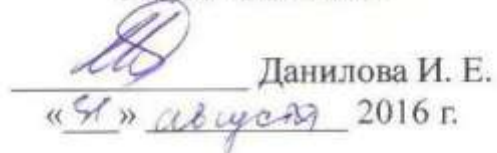 Данилова И. Е.
«31» августа 2016 г.